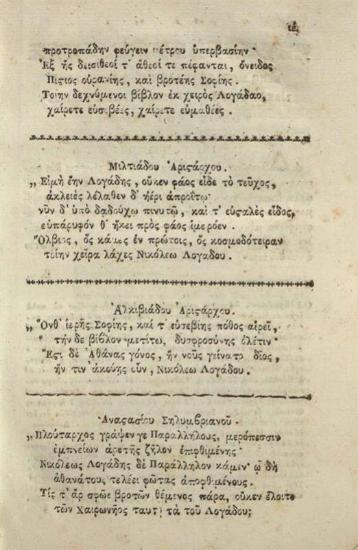 ιέ
προτροπάδην φεύγειν πέτρου ὑπερβασίην·
Ἐξ ἧς δεισίθεοί τ' ἄθεοί τε πέφανται, ὄνειδος
Πίςιος οὐρανίης, καὶ βροτέης Σοφίης.
Τοίην δεχνύμενοι βίβλον ἐκ χειρὸς Λογάδαο,
χαίρετε εὐσεβέες, χαίρετε εὐμαθέες.
Μιλτιάδου Ἀριςάρχου.
„ Εἰ μὴ ἔην Λογάδης, οὔκεν φάος εἶδε τὸ τεῦχος,
ἀκλειὲς λέλαθεν δ' ἠέρι ἀπροΐτῳ·
νῦν δ' ὑπὸ δᾳδούχῳ πινυτῷ, καί τ' εὐςαλὲς εἶδος,
εὐπάρυφον θ' ἥκει πρὸς φάος ἱμερόεν.
Ὄλβιος, ὃς κάμες ἐν πρώτοις, ὃς κοσμοδότειραν
τοίην χεῖρα λάχες Νικόλεω Λογάδου.
Ἀλκιβιάδου Ἀριςάρχου.
„ Ὅνθ' ἱερῆς Σοφίης, καί τ' εὐσεβίης πόθος αἱρεῖ,
τήνδε βίβλον μετίτω, δυσφροσύνης ὀλέτιν·
Ἔςι δὲ Ἀθάνας γόνος, ἣν νοῦς γείνατο δῖος,
ἥν τιν' ἀκούῃς οὖν, Νικόλεω Λογάδου.
Ἀναςασίου Σηλυμβριανοῦ.
„ Πλούταρχος γράψεν γε Παραλλήλους, μερόπεσσιν
ἐμπνείων ἀρετῆς ζῆλον ἐπιφθιμένης·
Νικόλεως Λογάδης δὲ Παράλληλον κάμιν' ᾠδῇ
ἀθανάτου, τελέει φῶτας ἀποφθιμένους.
Τίς τ' ἂρ σφῶε βροτῶν θέμινος πάρα, οὔκεν ἕλοιτο
τῶν Χαιρωνῆος ταυτὶ τὰ τοῦ Λογάδου;